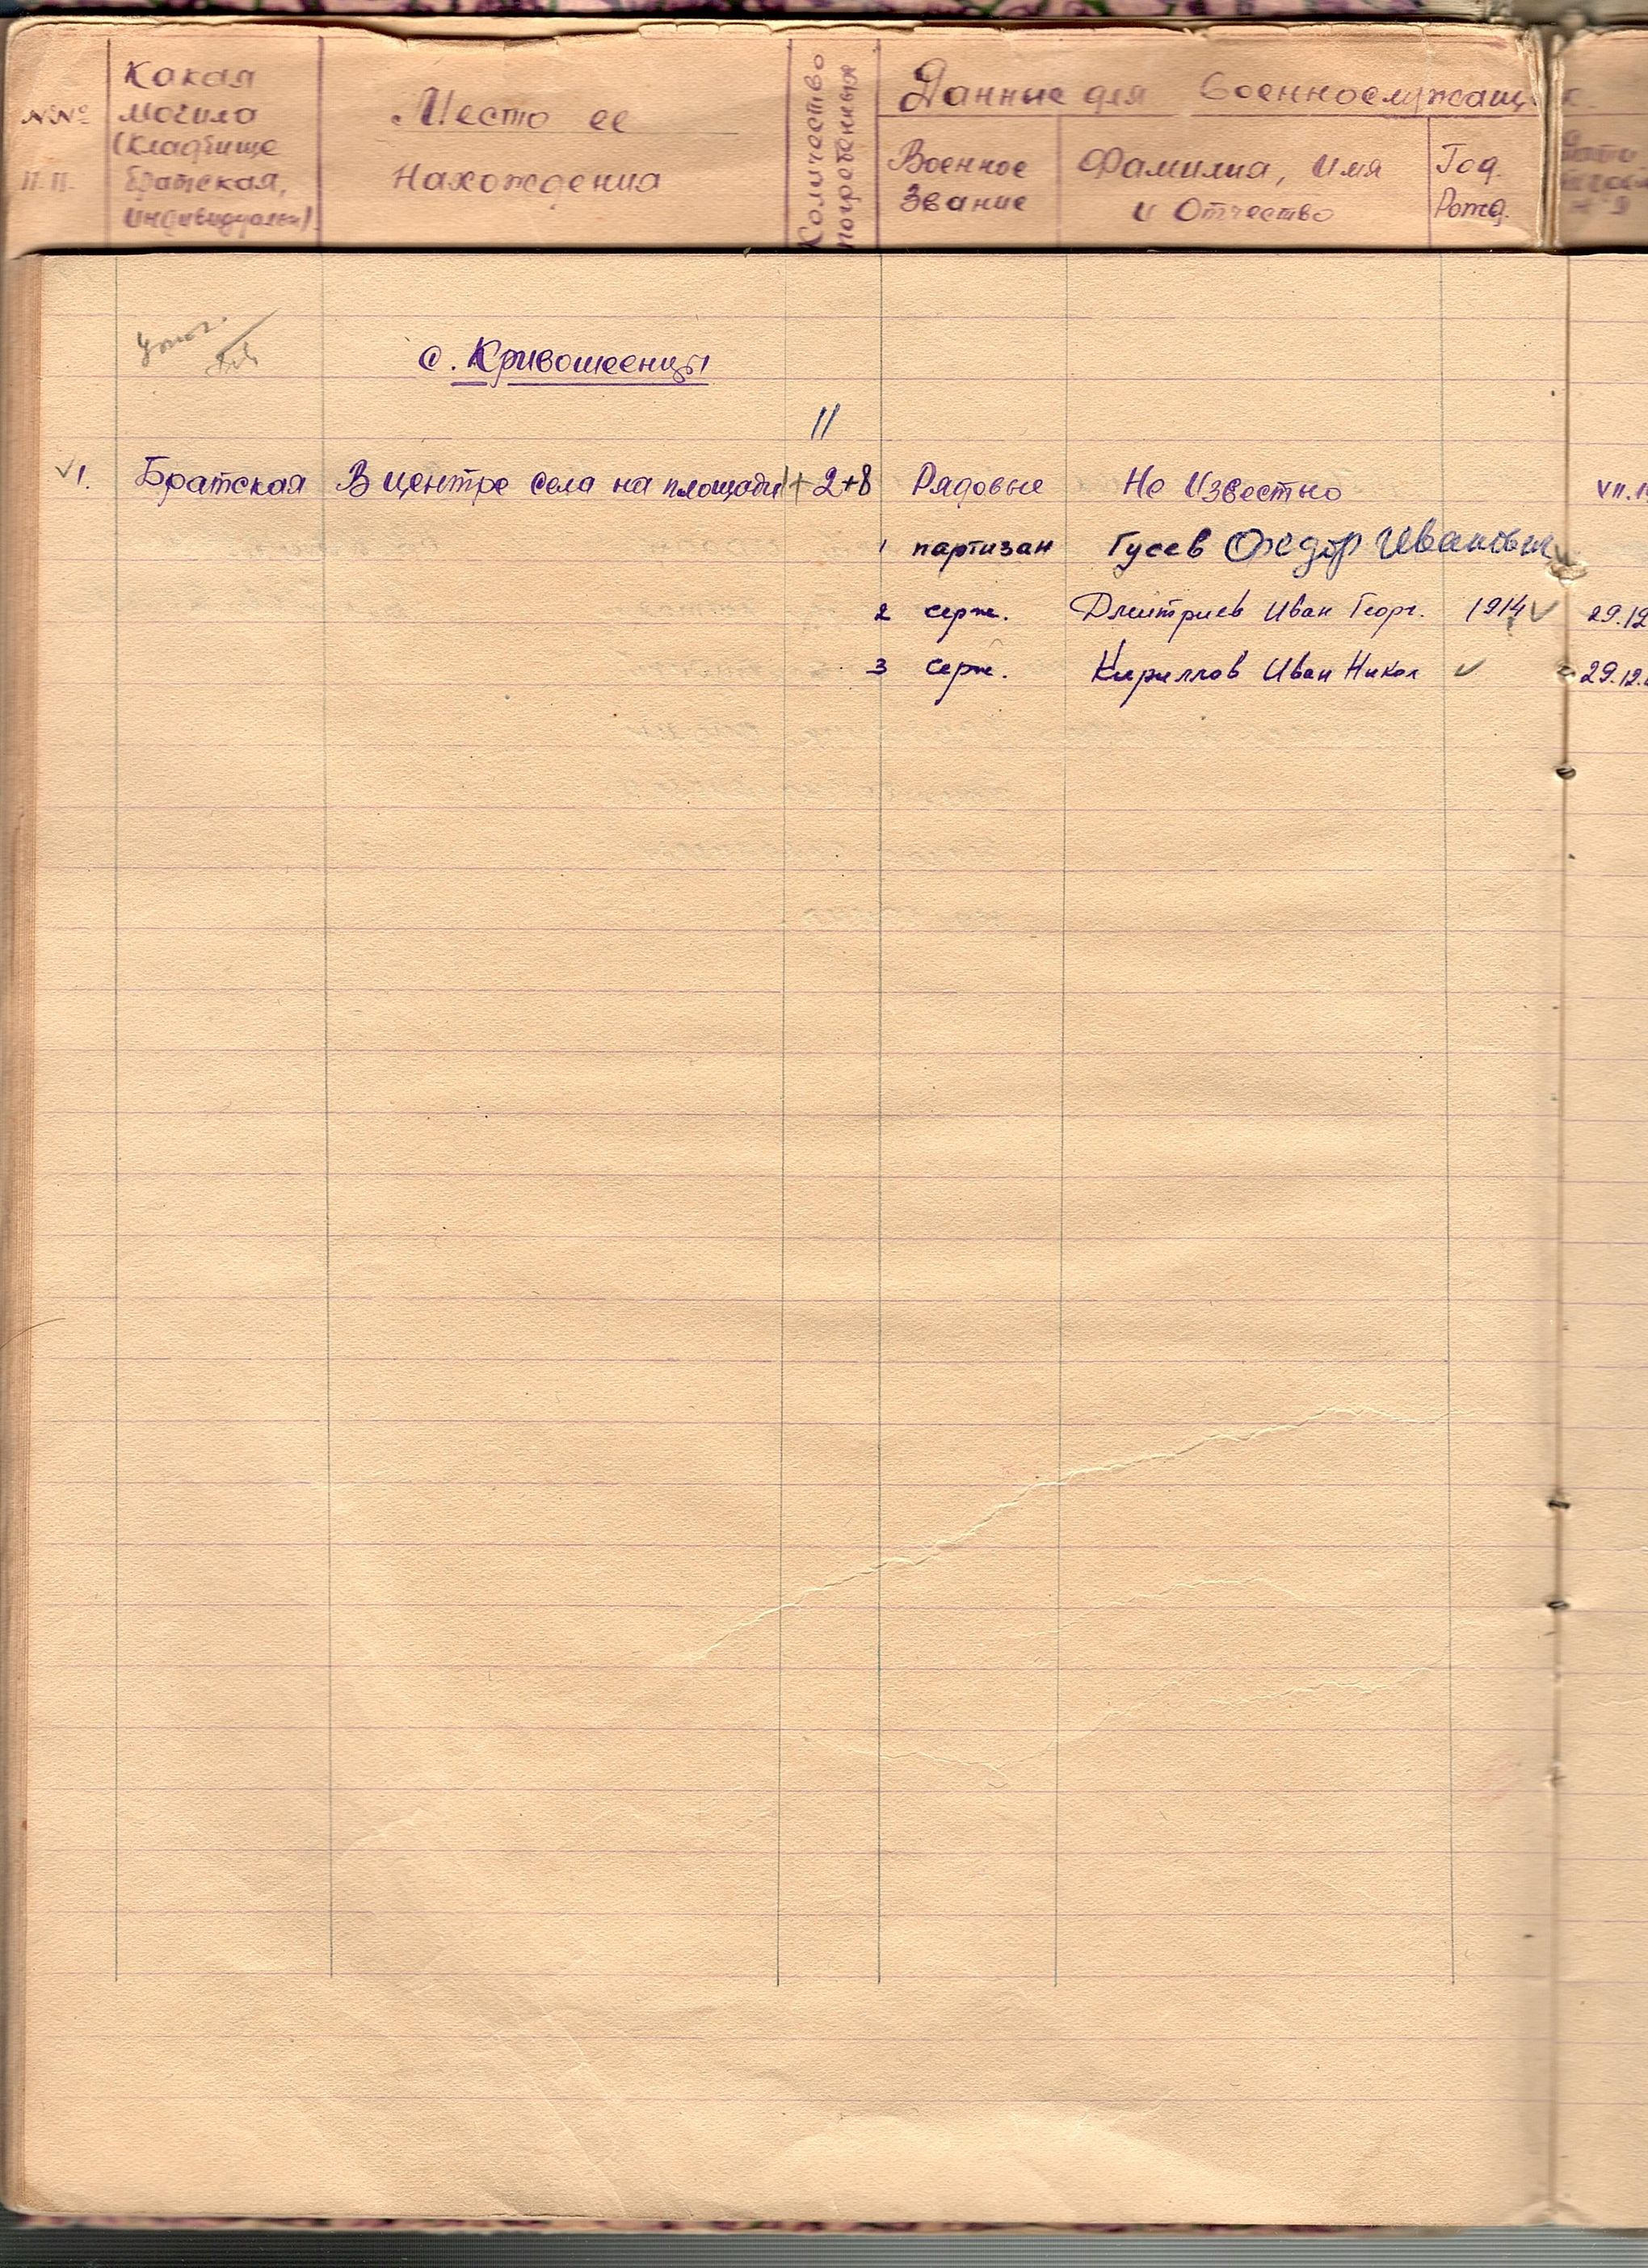 №№ п.п.
Какая могила (кладбище братская, индивидуальн).
Место ее нахождения
Количество погребенных
Данные для военнослужащ
Военное звание
Фамилия, имя и отчество
Год. Рожд.
с. Кривошеенцы
11
1. Братская В центре села на площади 1+2+8 Рядовые Не известно VII.1
1 партизан Гусев Фёдор Иванович
2 серж. Дмитриев Иван Георг. 1914 29.12
3 серж. Кириллов Иван Никол 29.12.